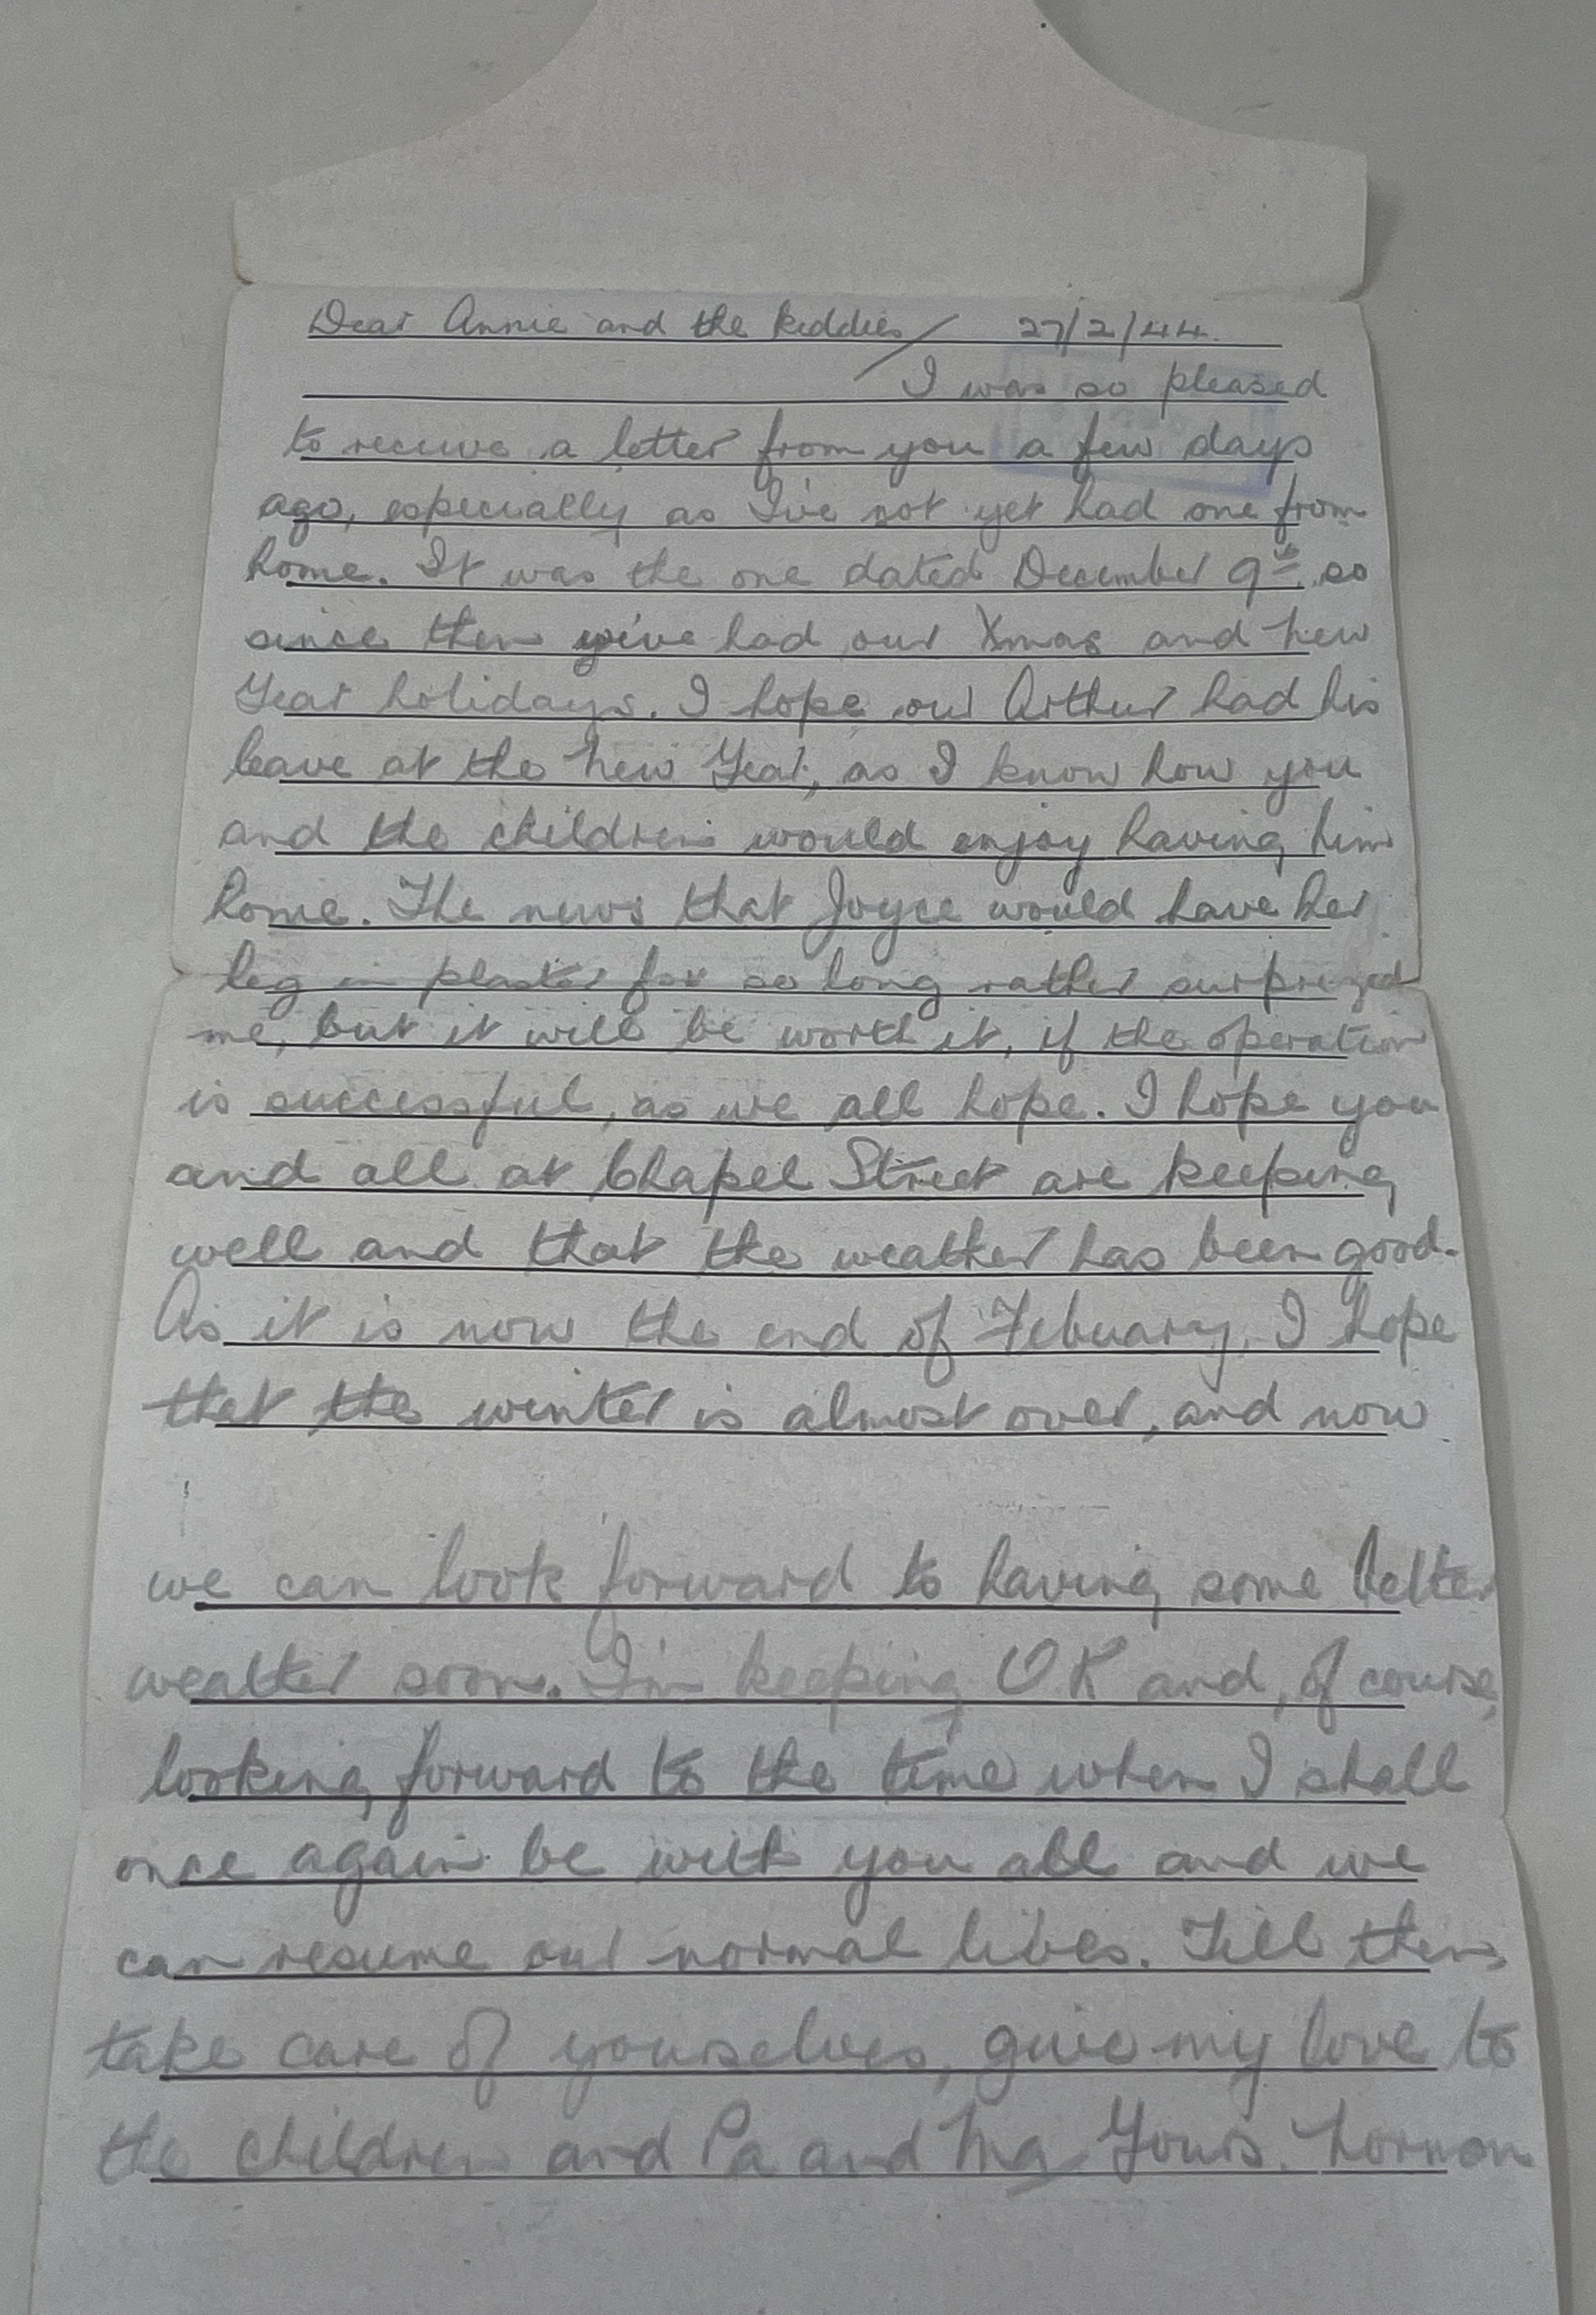 Dear Annie and the kiddies/ 27/2/44.
I was so pleased
to receive a letter from you a few days
ago, especially as I've not yet had one from
home. It was the one dated December 9th, so
since then we've had our Xmas and New
Year holidays. I hope our Arthur had his
leave at the New Year, as I know how you
and the children would enjoy having him
home. The news that Joyce would have her
leg in plaster for so long rather surprized
me, but it will be worth it, if the operation
is successful, as we all hope. I hope you
and all at Chapel Street are keeping
well and that the weather has been good.
As it is now the end of Febuary, I hope
that the winter is almost over, and now
we can look forward to having some better
weather soon. I'm keeping OK and, of course,
looking forward to the time when I shall
once again be with you all and we
can resume our normal lives. Till then,
take care of yourselves, give my love to
the children and Pa and Ma/ Yours. Norman